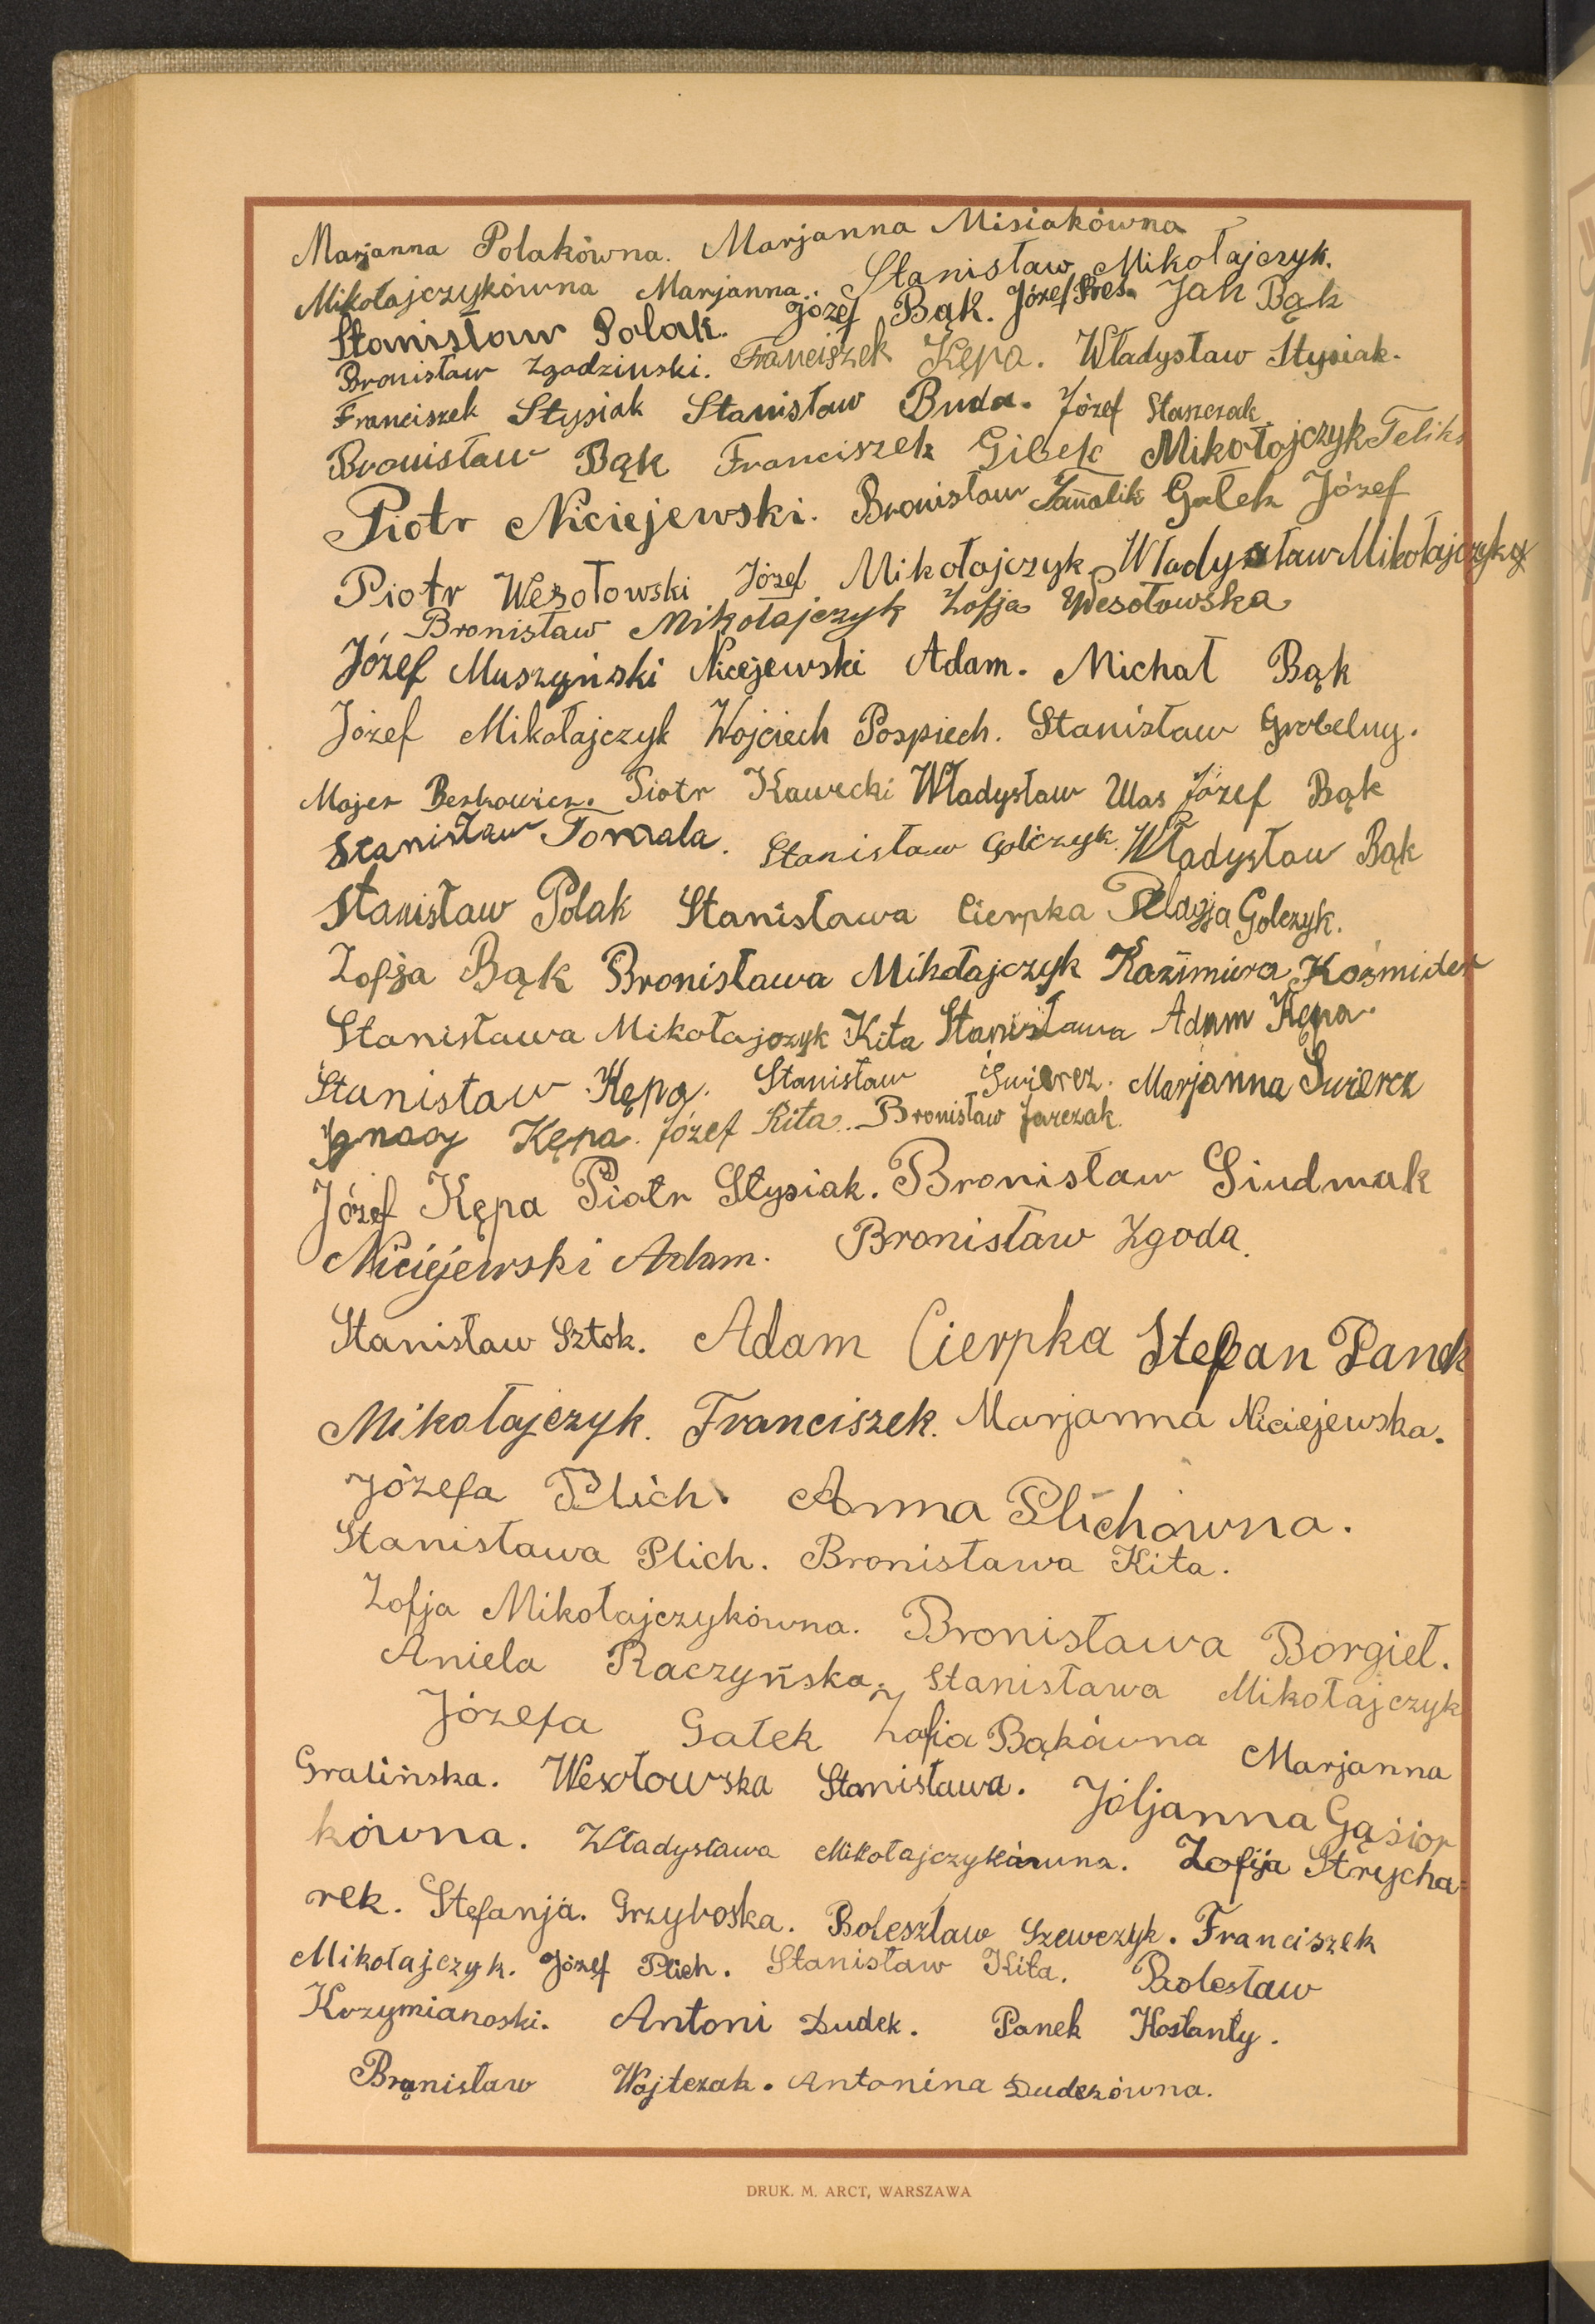 Marjanna Polakówna. Marjanna Misiakówna
Mikołajczykówna Marjanna. Stanisław Mikołajczyk.
Stanisław Polak. Józef Bąk. Józef Jan Bąk
Bronisław Zgodzinski. Franciszek Kępa. Władysław Stysiak.
Franciszek Stysiak Stanisław Buda. Józef Staszczak
Bronisław Bąk Franciszek Gibek Mikołojczyk Feliks
Piotr Niciejewski. Bronisław Gałek Józef
Piotr Wesołowski Józef Mikołojczyk Władysław Mikołajczyk
Bronisław Mikołajczyk Zofja Wesołowska
Józef Muszyński Nicejewski Adam. Michał Bąk
Józef Mikołajczyk Wojciech Pospiech. Stanisław Grobelny.
Majer Berkowicz. Piotr Kawecki Władysław Ulas Józef Bąk
Stanisław Tomala. Stanisław Golczyk. Władysław Bąk
Stanisław Polak Stanisława Cierpka Pelagja Golczyk.
Zofja Bąk Bronisława Mikołajczyk Kazimiera Koźmider
Stanisława Mikołajczyk Kita Stanisława Adam Kępa.
Stanisław Kępa. Stanisław Swiercz. Marjanna Swiercz
Ignacy Kępa. Józef Kita. Bronisław Jarczak.
Józef Kępa Piotr Stysiak. Bronisław Siudmak
Niciejewski Adam. Bronisław Zgoda.
Stanisław Sztok. Adam Cierpka Stefan Panek
Mikołajczyk. Franciszek. Marjanna Niciejewska.
Józefa Plich. Anna Plichówna.
Stanisława Plich. Bronisława Kita.
Zofja Mikołajczykówna. Bronisława Borgieł.
Aniela Raczyńska. Stanisława Mikołajczyk
Józefa Gałek Zofia Bąkówna Marjanna
Gralińska. Wesołowska Stanisława. Jóljanna Gąsior
kówna. Władysława Mikołajczykówna. Zofija Strycha=
rek. Stefanja. Grzyboska. Bolesztaw Szewczyk. Franciszek
Mikołajczyk. Józef Plich. Stanisław Kita. Bolesław
Krzymianoski. Antoni Dudek. Panek Kostanty.
Bronisław Wojtczak. Antonina Dudkówna.
DRUK. M. ARCT, WARSZAWA